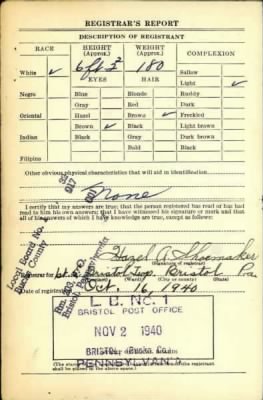 REGISTRAR'S REPORT
DESCRIPTION OF REGISTRANT
RACE HEIGHT (Approx.) WEIGHT (Approx.) COMPLEXION
White ✓ 6 ft 180 Sallow
EYES HAIR Light ✓
Negro Blue Blonde Ruddy
Gray Red Dark
Oriental Hazel Brown ✓ Freckled
Brown ✓ Black Light brown
Indian Black Gray Dark brown
Bald Black
Filipino
Other obvious physical characteristics that will aid in identification
None
I certify that my answers are true; that the person registered has read or has had
read to him his own answers; that I have witnessed his signature or mark and that
all of his answers of which I have knowledge are true, except as follows:
Local Board No.
Bucks County
Bristol, Pennsylvania
Hazel A Shoemaker
(Signature of registrar)
Registrar for Bristol Twp. Bristol Pa
Date of registration Oct. 16, 1940
L. B. No. 1
BRISTOL POST OFFICE
NOV 2 1940
BRISTOL (Bucks Co.)
PENNSYLVANIA
shall be placed in the above space.)